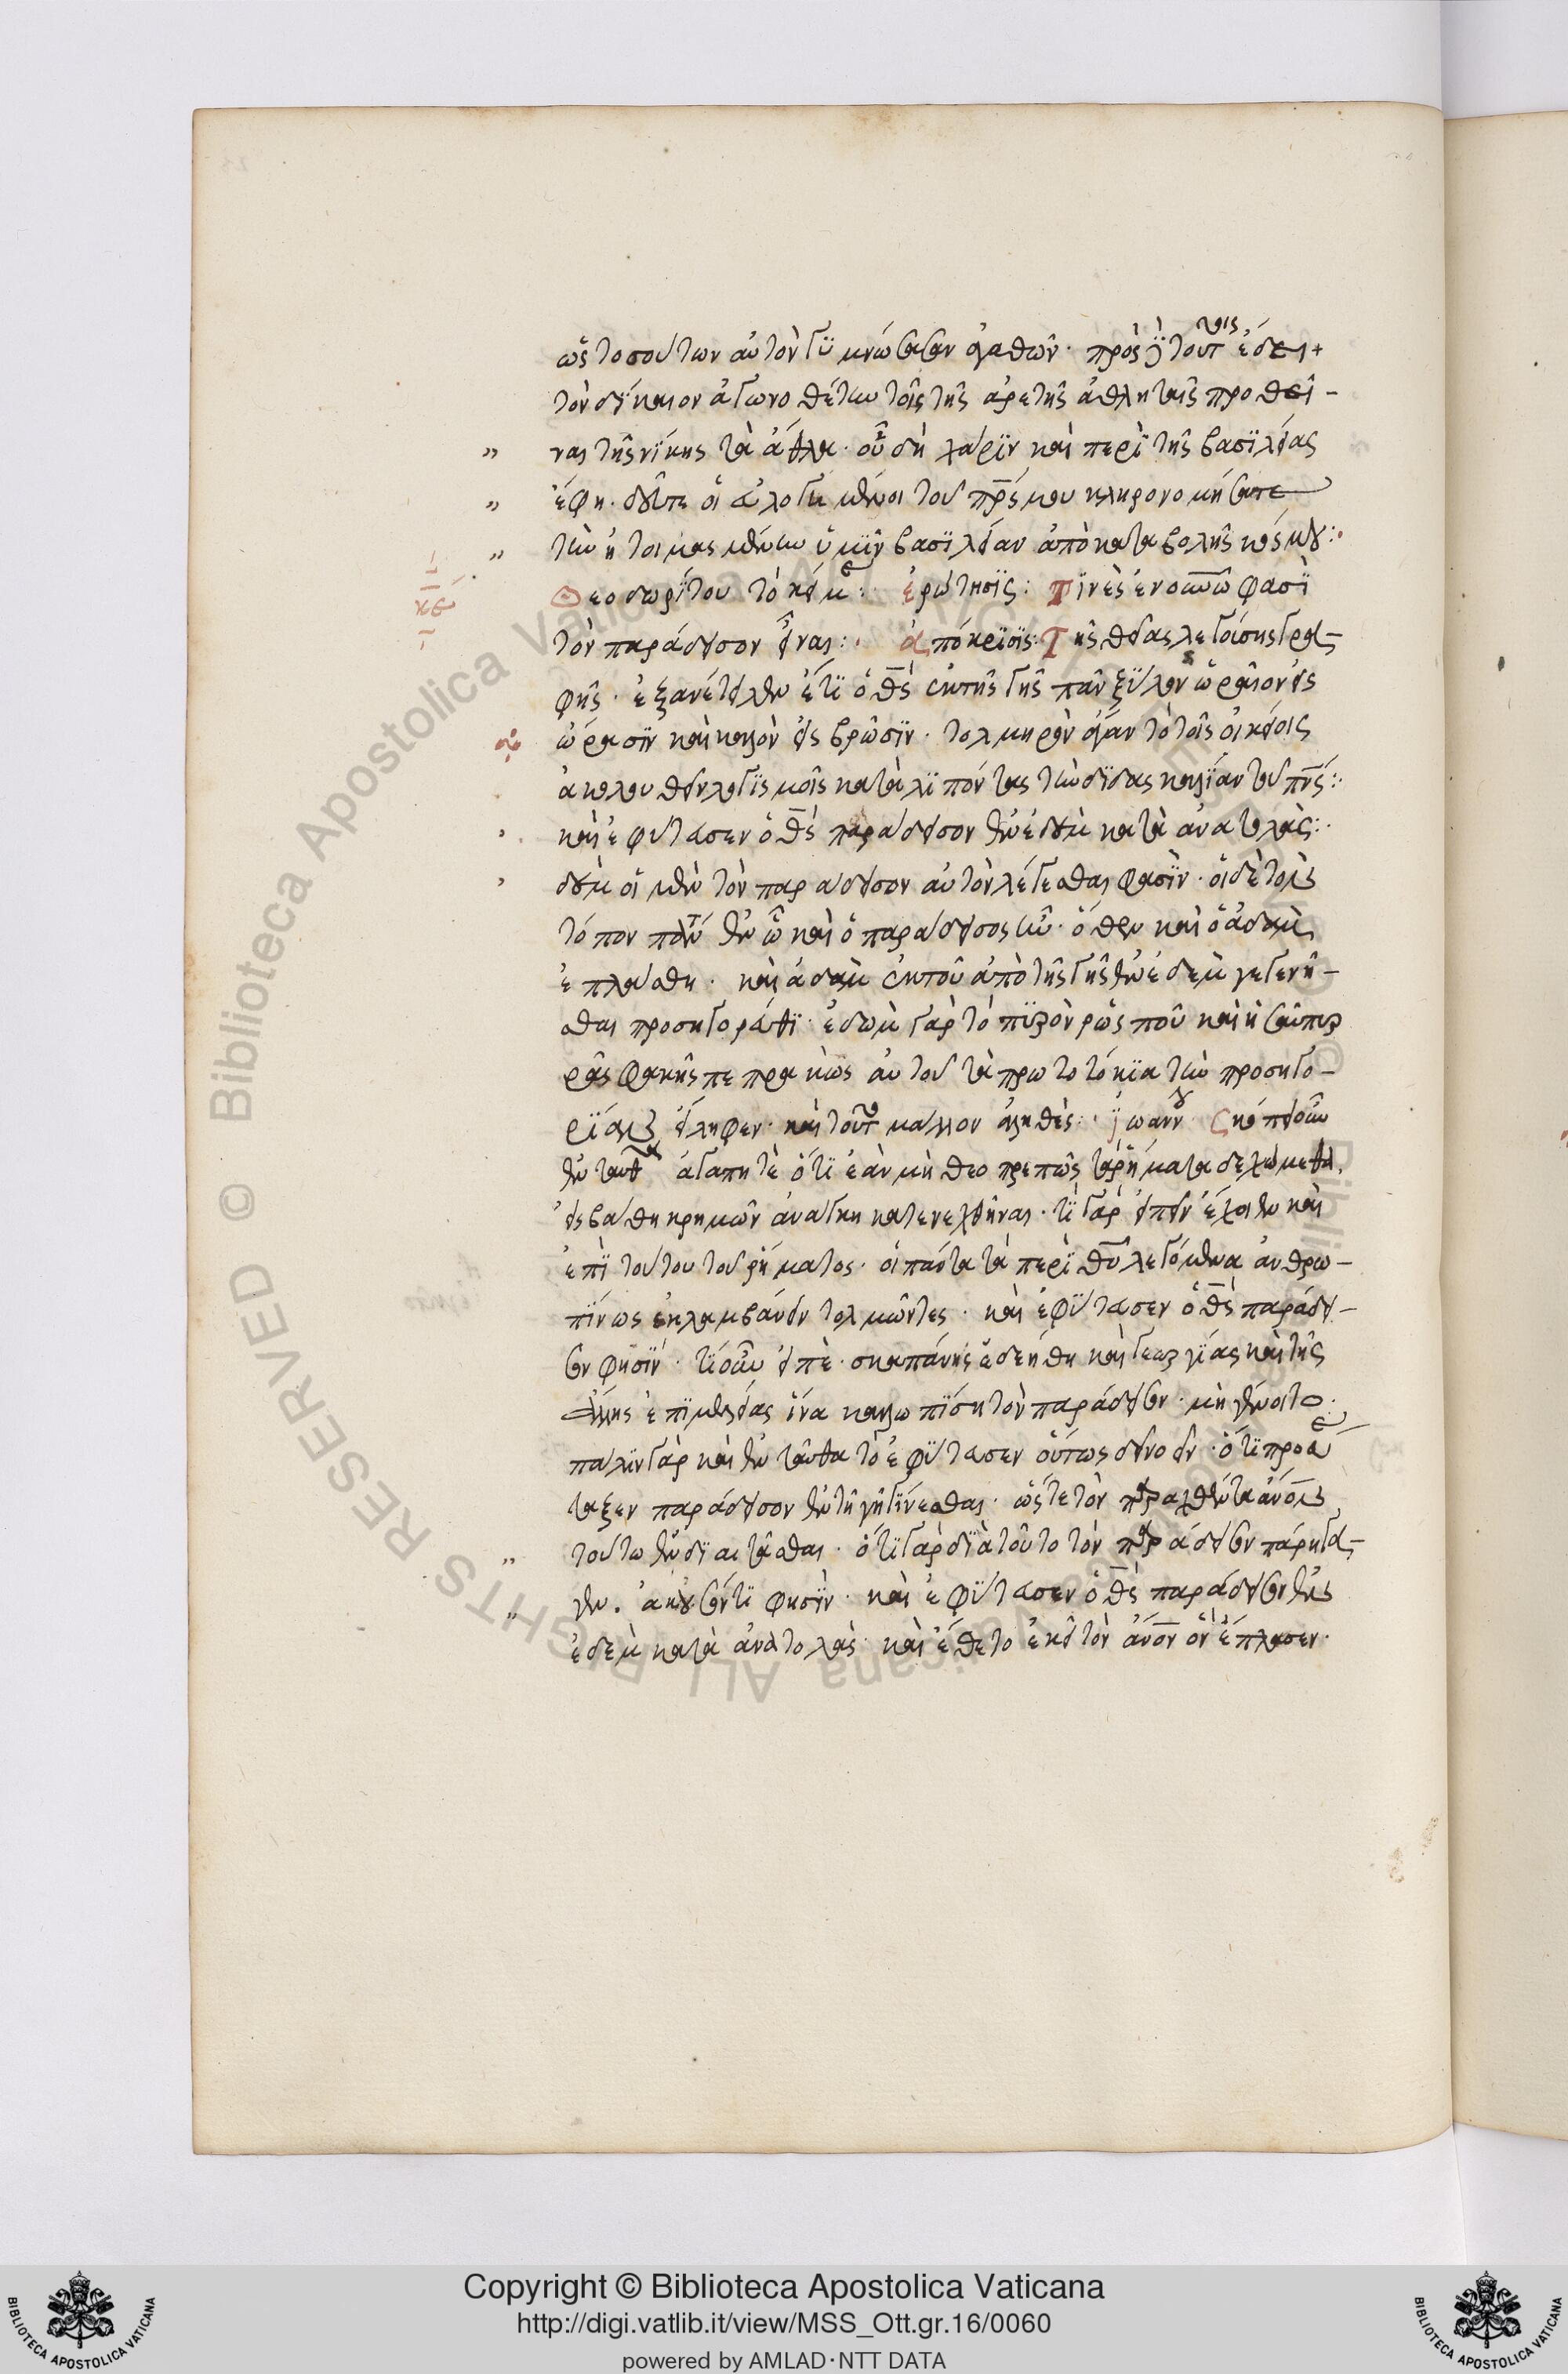 ὡς τοσούτων αὐτὸν γυμνώσασαν ἀγαθῶν· πρὸς δὲ τούτοις ἔδει
τὸν δίκαιον ἀγωνοθέτην τοῖς τῆς ἀρετῆς ἀθληταῖς προθεῖ-
ναι τῆς νίκης τὰ ἆθλα· οὗ δὴ χάριν καὶ περὶ τῆς βασιλείας
ἔφη· δεῦτε οἱ εὐλογημένοι τοῦ πρς μου κληρονομήσατε
τὴν ἡτοιμασμένην ὑμῖν βασιλείαν ἀπὸ καταβολῆς κόσμου:·
κε
Θεοδωρίτου τὸ κείμε:· ἐρώτησις: Τινὲς ἐν οὐνῶ φασὶ
τὸν παράδεισον εἶναι:· ἀπόκρισις: Τῆς θείας λεγούσης γρα-
φῆς· ἐξανέτειλεν ἔτι ὁ θς ἐκ τῆς γῆς πᾶν ξύλον ὡραῖον εἰς
ὥρασιν καὶ καλὸν εἰς βρῶσιν· τολμηρὸν ἄγαν τὸ τοῖς οἰκείοις
ἀκολουθεῖν λογισμοῖς καταλιπόντας τὴν διδασκαλίαν τοῦ πνς:·
καὶ ἐφύτευσεν ὁ θς παράδεισον ἐν ἐδὲμ κατὰ ἀνατολάς:·
ἐδὲμ οἱ μὲν τὸν παράδεισον αὐτὸν λέγεσθαι φασὶν· οἱ δὲ τοὺς
τόπον ἐν ᾧ καὶ ὁ παράδεισος ἦν· ὅθεν καὶ ὁ ἀδὰμ
ἐπλάσθη· καὶ ἀδὰμ ἐκ τοῦ ἀπὸ τῆς γῆς ἐν ἐδὲμ γεγενῆ-
σθαι προσηγορεύθη· ἐδὼμ γὰρ τὸ πυρρὸν ὥς που καὶ ἡσαῦ πυρ
ρᾶς φακῆς πεπρακὼς αὐτοῦ τὰ πρωτοτόκια τὴν προσηγο-
ρίαν εἴληφεν· καὶ τοῦτο μᾶλλον ἀληθές:· ἰωάννου· Σκόπει οὖν
ἐνταῦθα ἀγαπητὲ ὅτι ἐὰν μὴ θεοπρεπῶς τὰ ῥήματα δεχώμεθα,
εἰς βάθη κρημνῶν ἀνάγκη κατενεχθῆναι· τί γὰρ εἰπεῖν ἔχοιεν καὶ
ἐπὶ τούτου τοῦ ῥήματος· οἱ πάντα τὰ περὶ θυ λεγόμενα ἀνθρω-
πίνως ἐκλαμβάνειν τολμῶντες· καὶ ἐφύτευσεν ὁ θς παράδει-
σον φησίν· τί οὖν εἰπέ· σκαπάνης ἐδεήθη καὶ γεωργίας καὶ τῆς
ἄλλης ἐπιμελείας ἵνα καλλωπίση τὸν παράδεισον· μὴ γένοιτο·
πάλιν γὰρ καὶ ἐνταῦθα τὸ ἐφύτευσεν οὕτως δεῖ νοεῖν· ὅτι προσέ
ταξεν παράδεισον ἐν τῆ γῆ γίνεσθαι· ὥστε τὸν παραχθέντα ἄνον εἰς
τούτω ἐνδιαιτᾶσθαι· ὅτι γὰρ διὰ τοῦτο τὸν παράδεισον παρήγα-
γεν· ἄκουσόν τι φησὶν· καὶ ἐφύτευσεν ὁ θς παράδεισον ἐν
ἐδὲμ κατὰ ἀνατολάς· καὶ ἔθετο ἐκεῖ τὸν ἄνον ὃν ἔπλασεν·
Copyright © Biblioteca Apostolica Vaticana
http://digi.vatlib.it/view/MSS_Ott.gr.16/0060
powered by AMLAD·NTT DATA